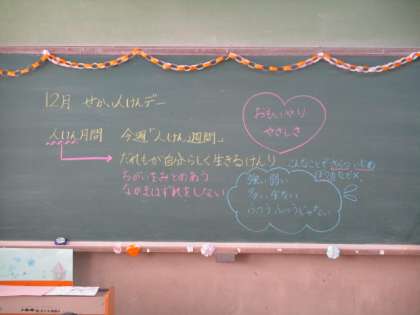 12月 せかい人けんデー
人けん月間 今週「人けん週間」
だれもが自分らしく生きるけんり
ちがいをみとめあう
なかまはずれをしない
おもいやり
やさしさ
こんなことで
強い 弱い
多い 少ない